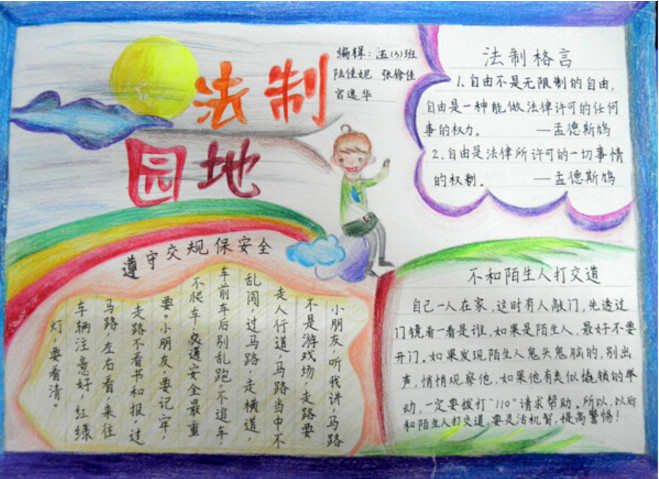 法制
园地
编辑：五(3)班
法制格言
1.自由不是无限制的自由,
自由是一种能做法律许可的任何
事的权力。 —孟德斯鸠
2.自由是法律所许可的一切事情
的权利。 —孟德斯鸠
遵守交规保安全
小朋友，听我讲，马路
不是游戏场，走路要
走人行道，马路当中不
乱闯，过马路，走横道，
车前车后别乱跑，不追车，
不爬车，交通安全最重
要。小朋友，要记牢，
走路不看书和报，过
马路，左右看，来往
车辆注意好，红绿
灯，要看清。
不和陌生人打交道
自己一人在家，这时有人敲门，先透过
门镜看一看是谁，如果是陌生人，最好不要
开门。如果发现陌生人鬼头鬼脑的，别出
声，悄悄观察他，如果他有类似撬锁的举
动，一定要拨打"110"请求帮助。所以，以后
和陌生人打交道，要灵活机智，提高警惕！